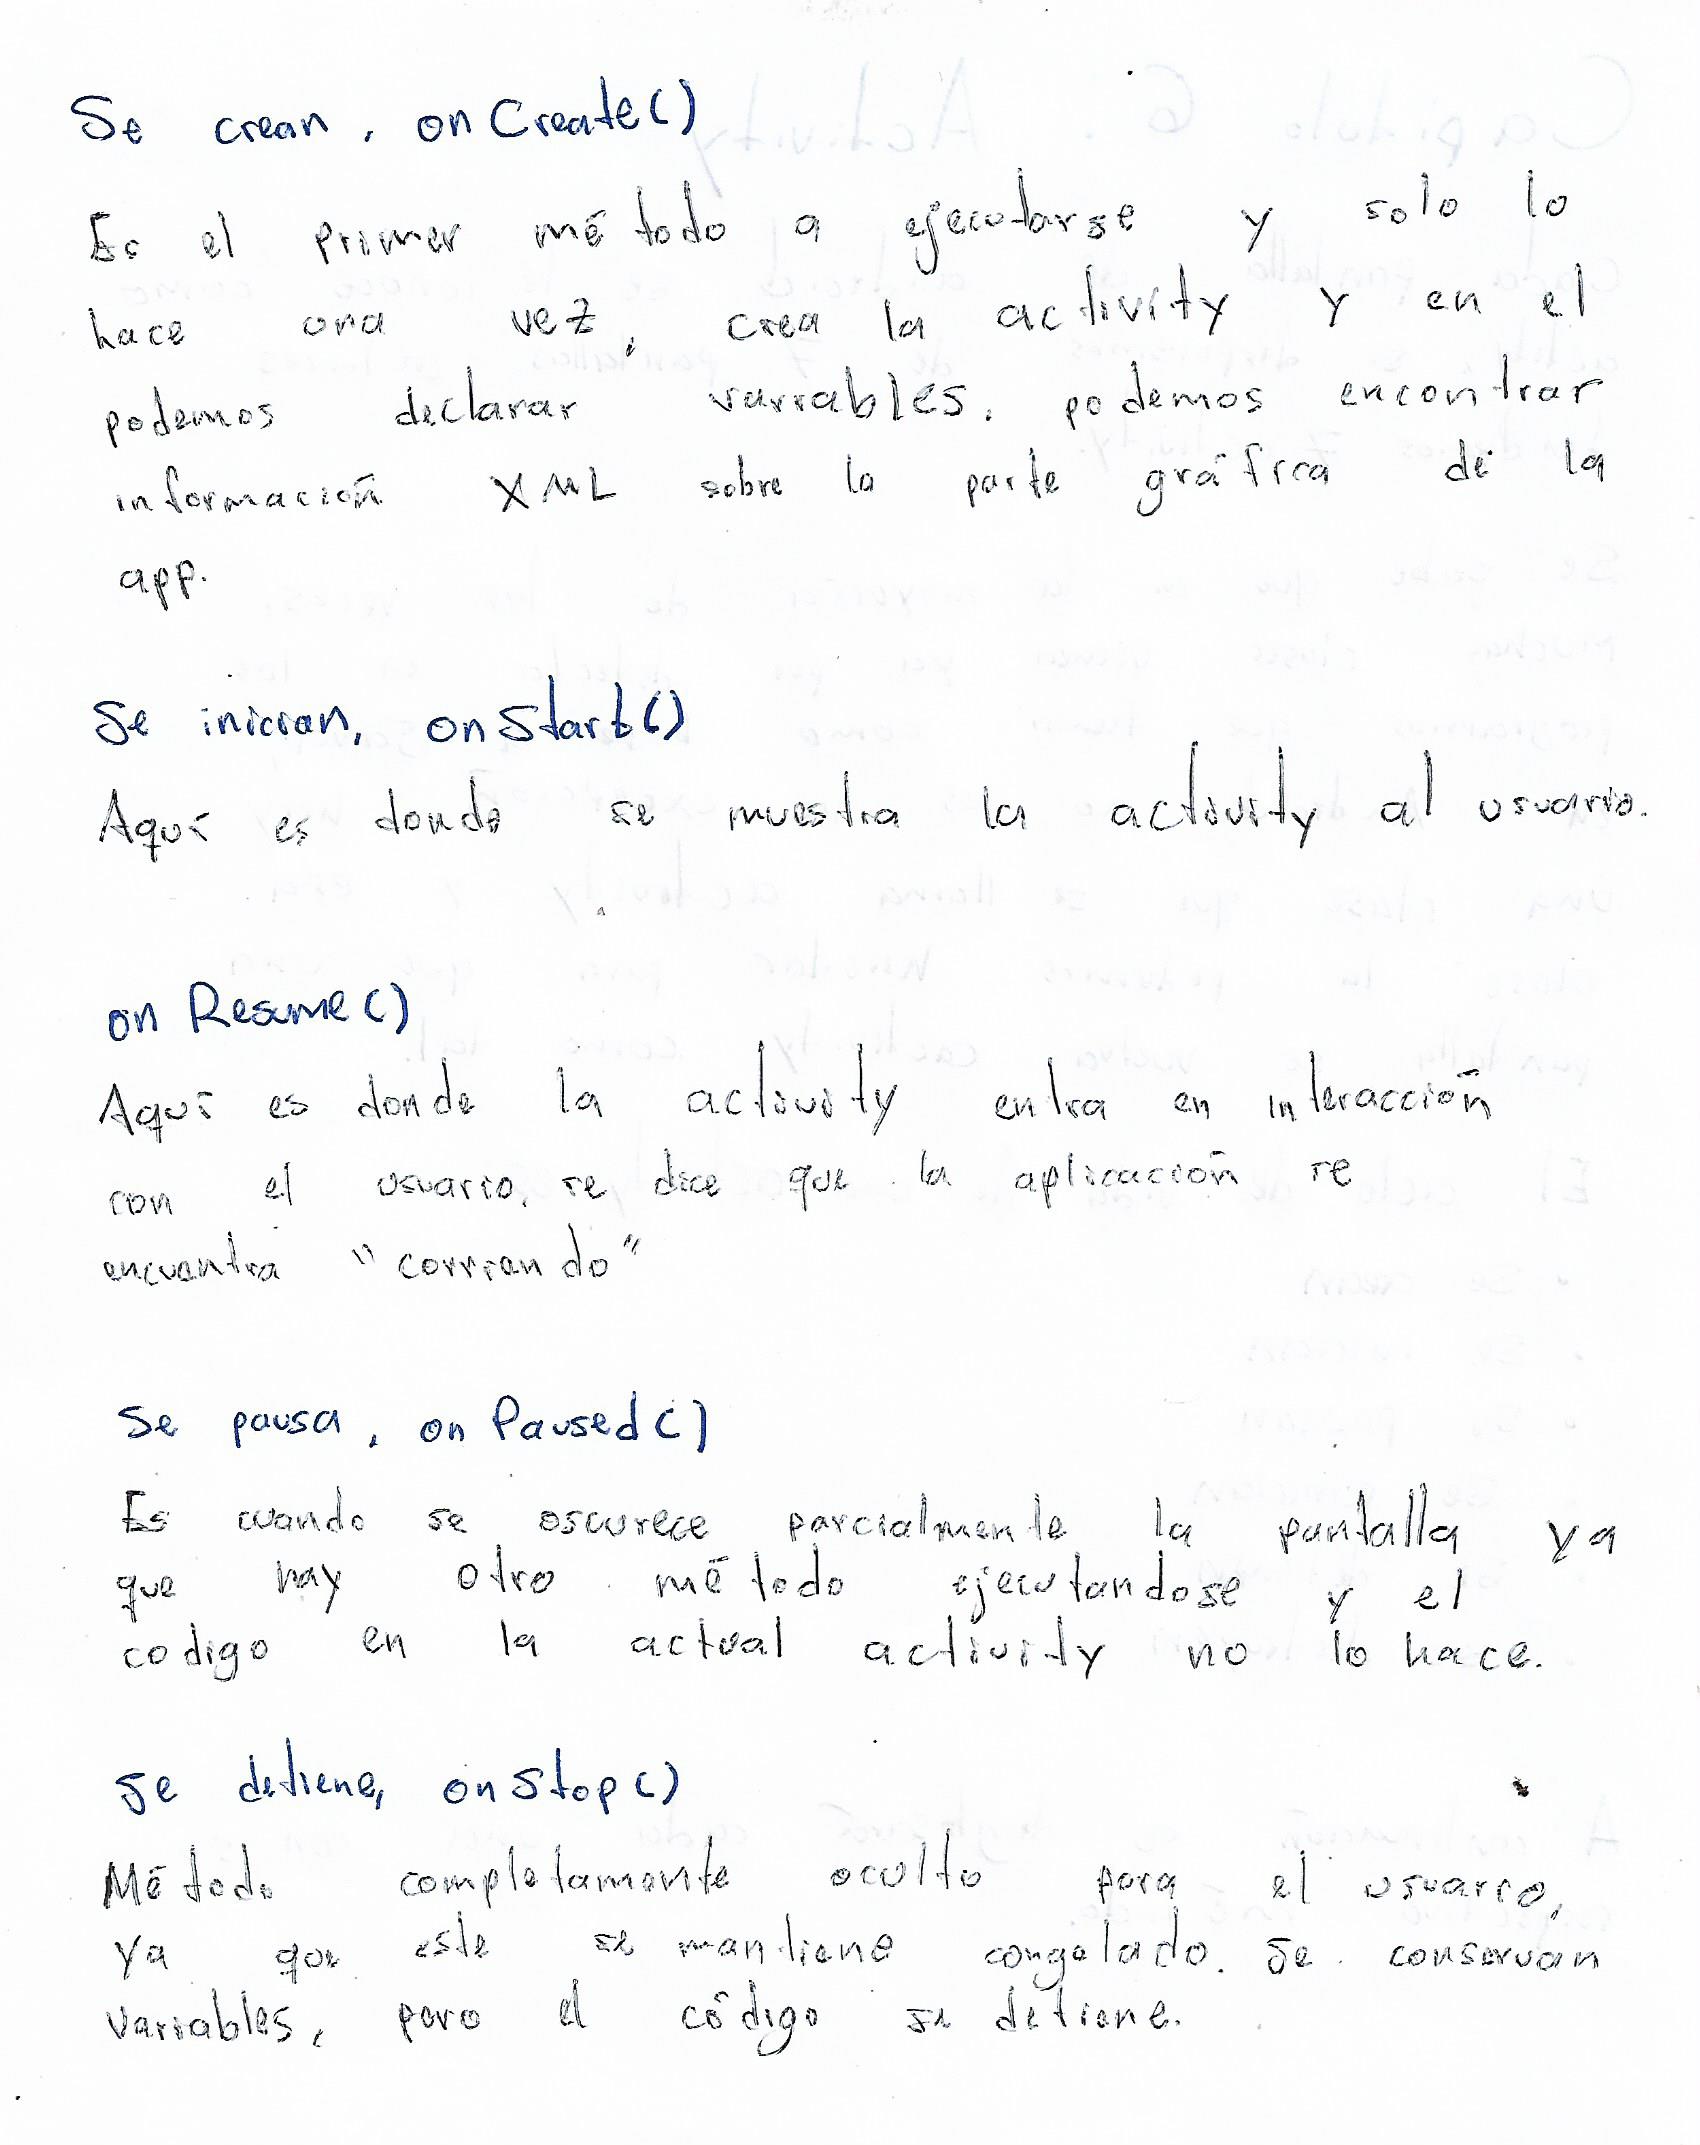 Se crean, onCreate()
Es el primer método a ejecutarse y solo lo
hace una vez, crea la activity y en el
podemos declarar variables. podemos encontrar
información XML sobre la parte gráfica de la
app.
Se inician, onStart()
Aquí es donde se muestra la activity al usuario.
onResume()
Aquí es donde la activity entra en interacción
con el usuario, se dice que la aplicación se
encuentra "corriendo"
Se pausa, onPaused()
Es cuando se oscurece parcialmente la pantalla ya
que hay otro método ejecutandose y el
codigo en la actual activity no lo hace.
Se detiene, onStop()
Método completamente oculto para el usuario,
ya que este se mantiene congelado. Se conservan
variables, pero el código se detiene.